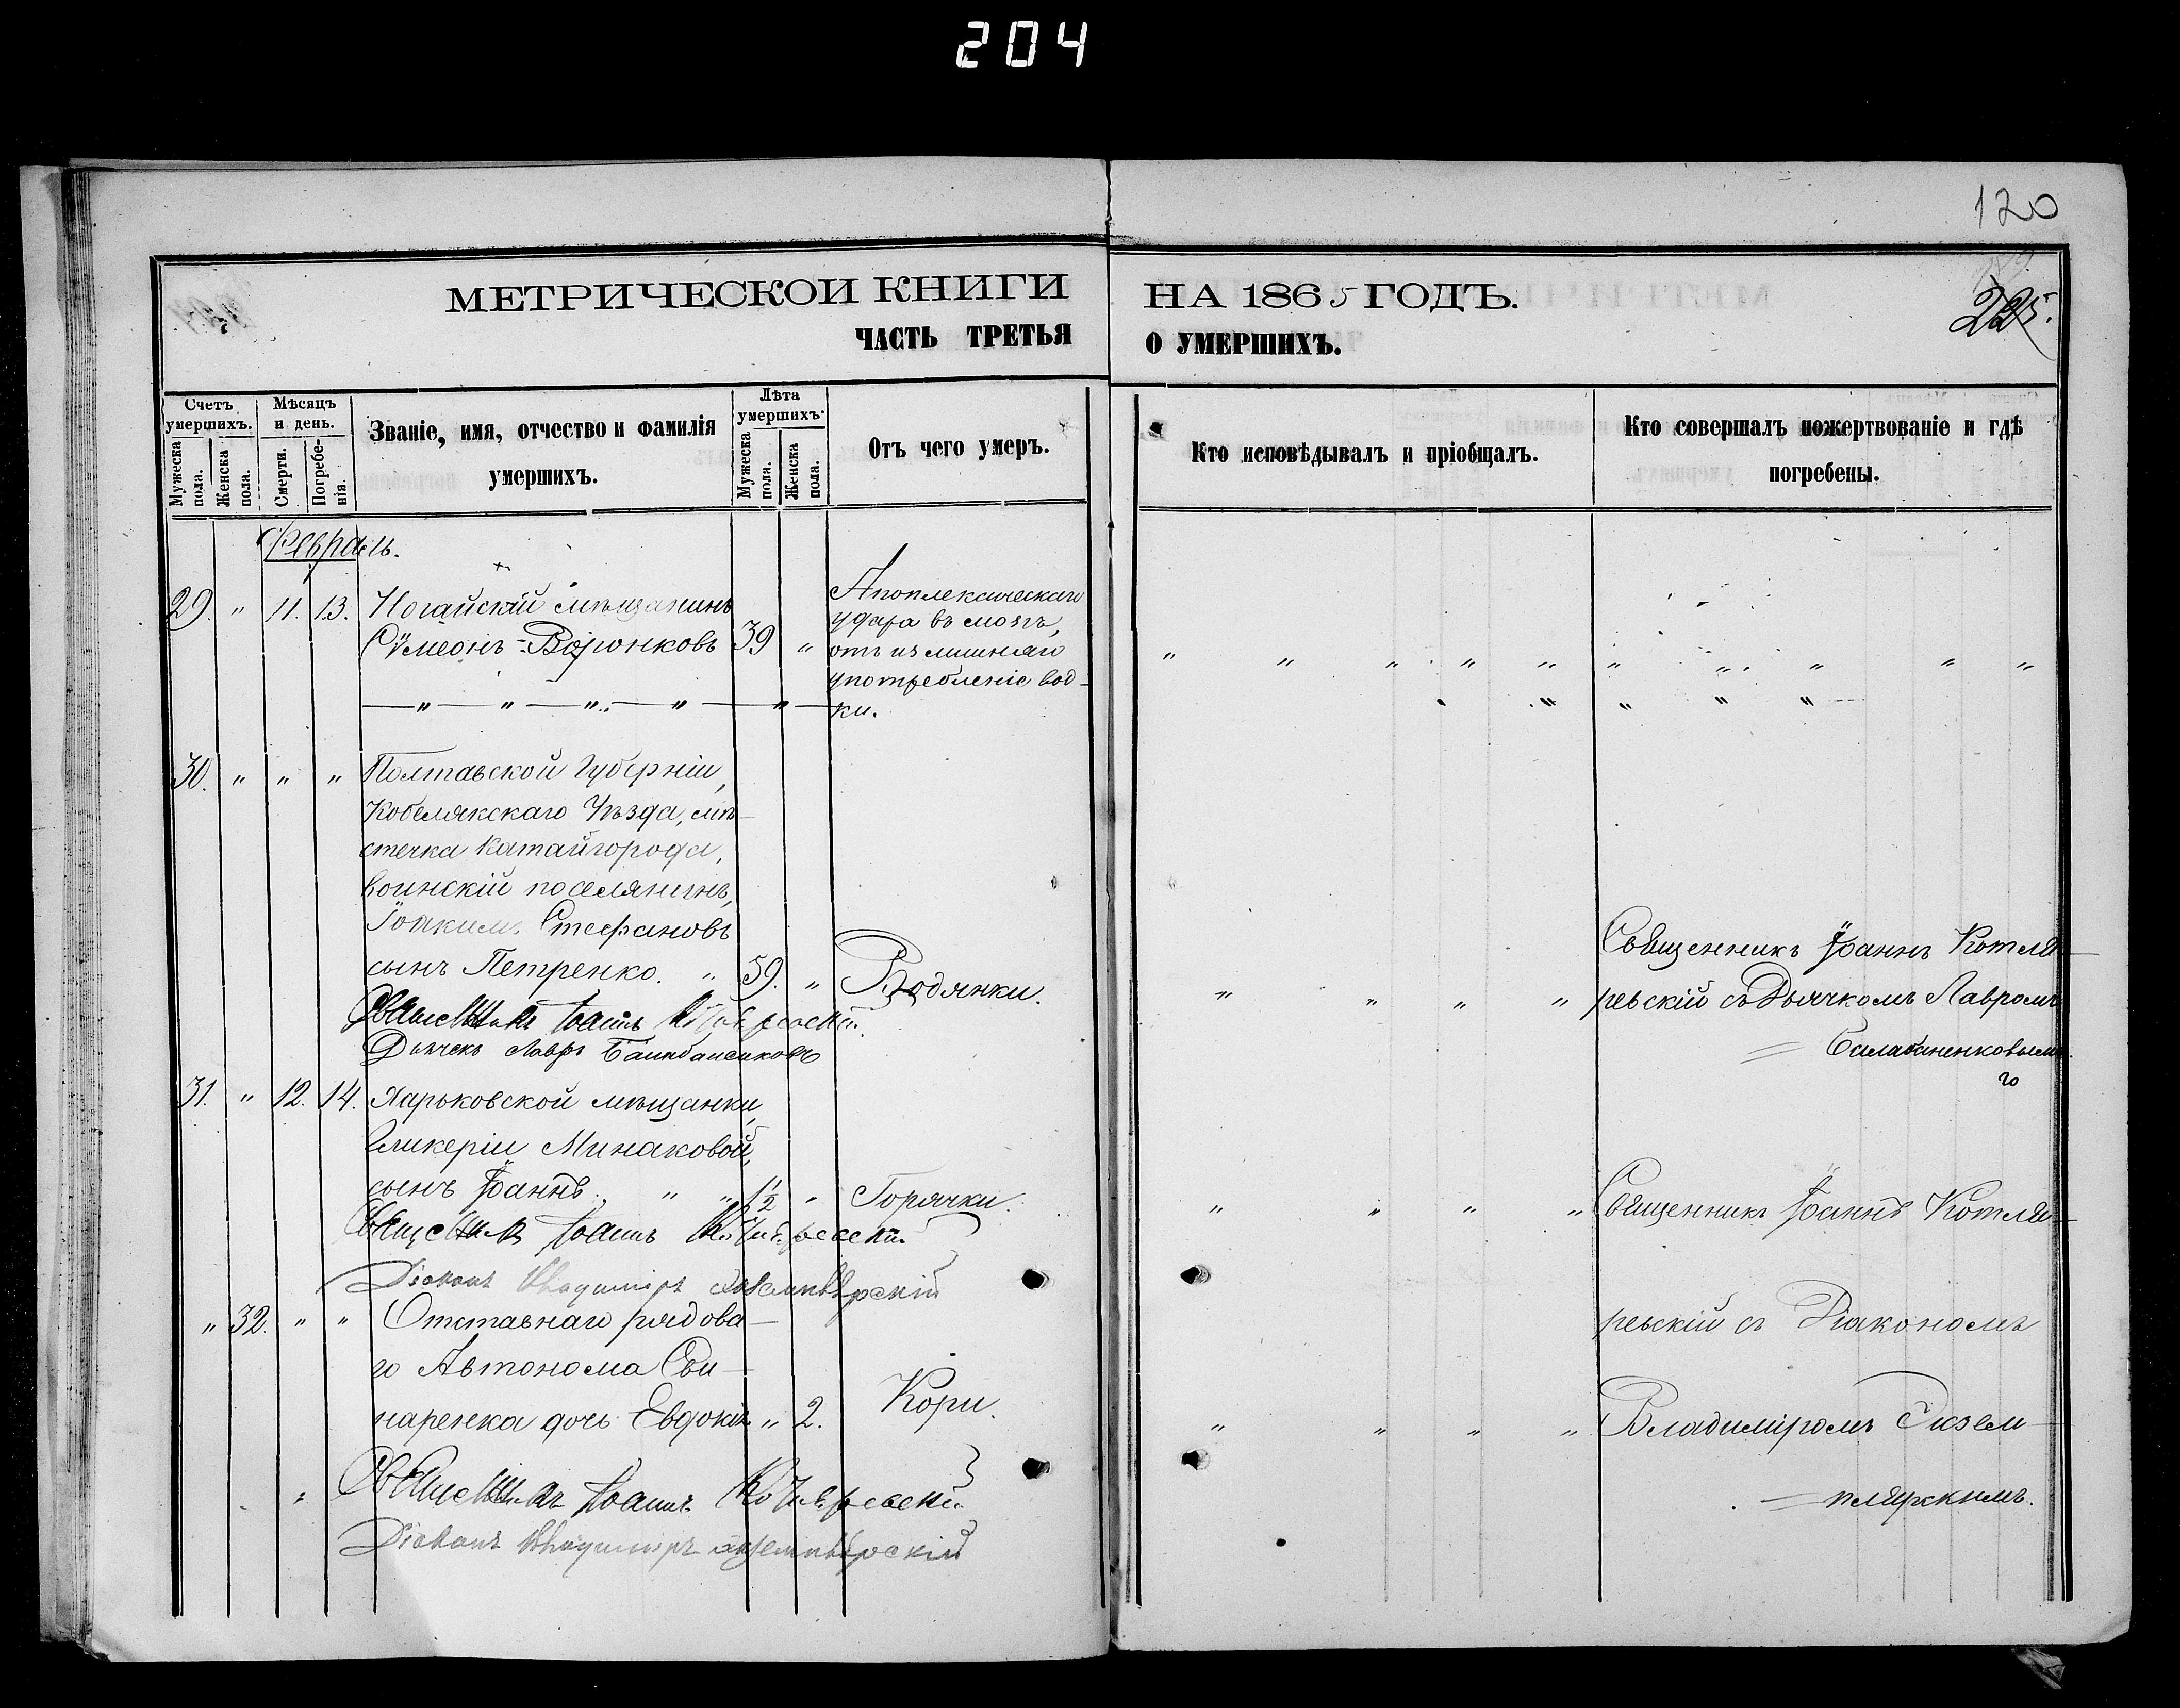 204
120
225.
МЕТРИЧЕСКОЙ КНИГИ НА 1865 ГОДЪ.
ЧАСТЬ ТРЕТЬЯ О УМЕРШИХЪ.
Счетъ умершихъ.
Мужеска пола.
Женска пола.
Мѣсяцъ и день.
Смерти.
Погребенія.
Званіе, имя, отчество и фамилія
умершихъ.
Лѣта умершихъ.
Мужеска пола.
Женска пола.
Отъ чего умеръ.
Кто исповѣдывалъ и пріобщалъ.
Кто совершалъ пожертвованіе и гдѣ
погребены.
Февраль.
29. " 11. 13. Ногайскій мѣщанинъ
Сѵмеонъ - Воронковъ 39 "
Апоплексическаго
удара въ мозгъ,
отъ излишняго
употребленіе вод-
ки.
30. " " " Полтавской Губерніи,
Кобелякскаго Уѣзда, мѣ-
стечка Катайгорода,
воинскій поселянинъ,
Іоакимъ Стефановъ
сынъ Петренко. " 59. " Водянки.
Священникъ Іоаннъ Котля-
ревскій съ Дьячкомъ Лавромъ
Балабаненковымъ.
Священникъ Іоаннъ Котляревскій
Дьячекъ Лавръ
31. " 12. 14. Харьковской мѣщанки,
Гликеріи Минаковой,
сынъ Іоаннъ. " " 1½ " Горячки.
Священникъ Іоаннъ Котляревскій
Діаконъ Владиміръ
Священникъ Іоаннъ Котля-
ревскій съ Діакономъ
" 32. " " Отставнаго рядова-
го Автонома Сви-
наренка дочь Евдокія " 2. Кори.
Владиміромъ Экзем-
плярскимъ.
Священникъ Іоаннъ Котляревскій
Діаконъ Владиміръ